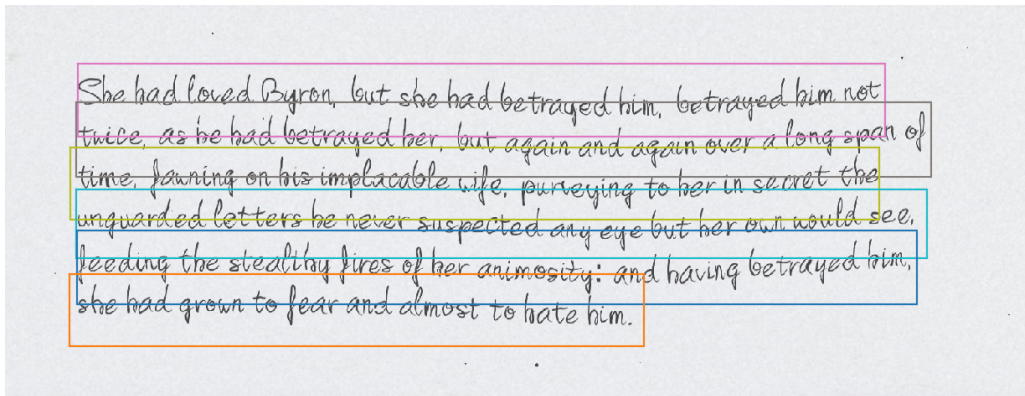 She had loved Byron, but she had betrayed him, betrayed him not
twice, as he had betrayed her, but again and again over a long span of
time, fawning on his implacable wife, purveying to her in secret the
unguarded letters he never suspected any eye but her own would see,
feeding the stealthy fires of her animosity: and having betrayed him,
she had grown to fear and almost to hate him.